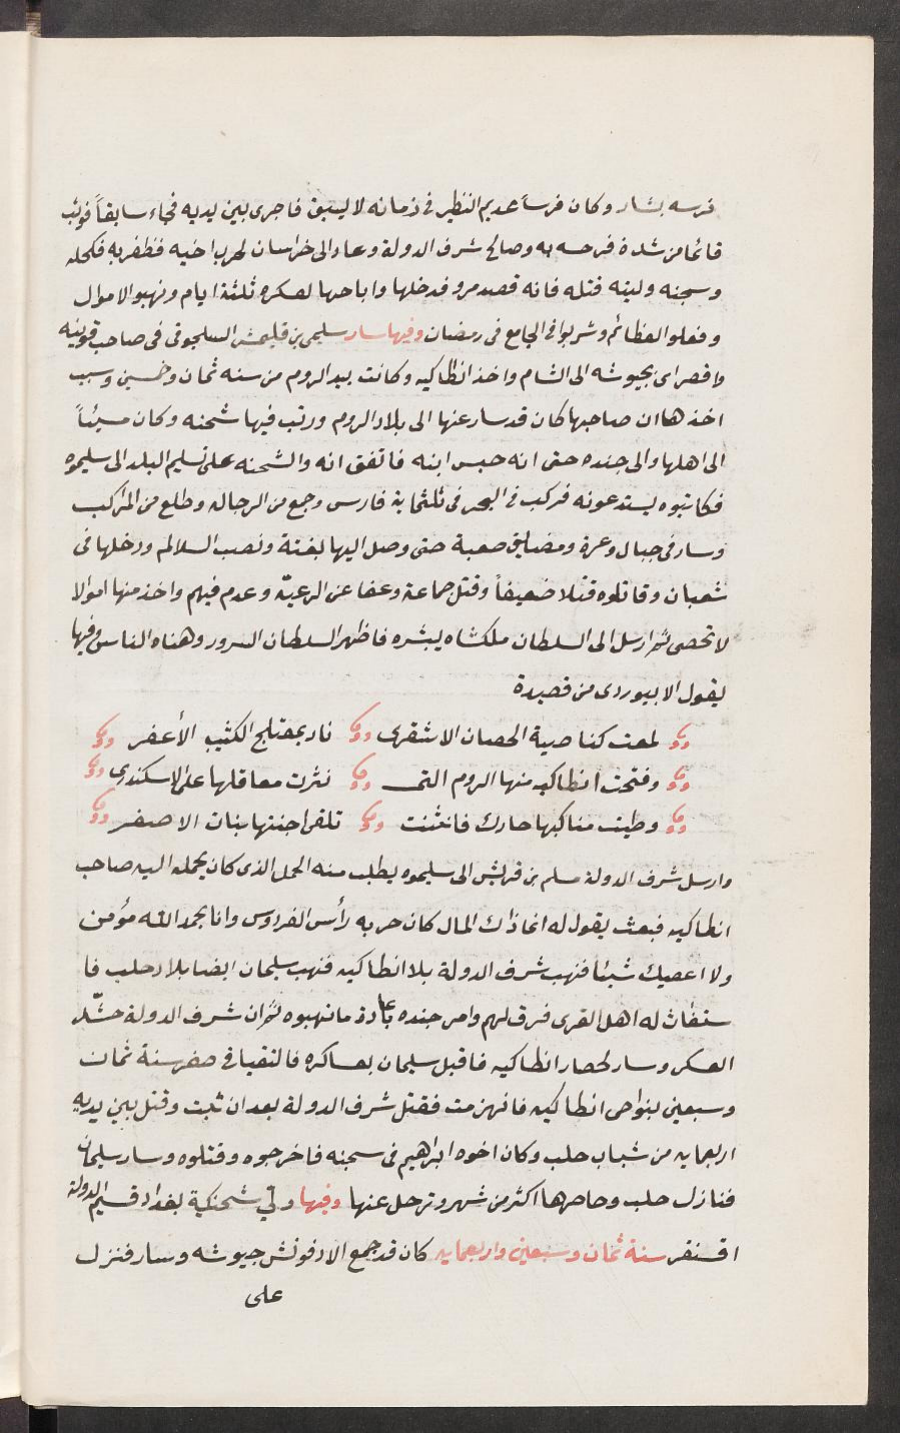 فرسه بشار وكان فرساً عديم النظير فى زمانه لا يسبق فاجرى بين يديه فجاء سابقاً فوثب
قائما من شدة فرحه به وصالح شرف الدولة وعاد الى خراسان لحرب اخيه فظفر به فكحله
وسجنه وليته قتله فانه قصد مرو فدخلها واباحها لعسكره ثلثة ايام ونهبوا الاموال
وفعلوا العظائم وشربوا فى الجامع فى رمضان وفيها سار سليمن بن قلتمش السلجوقى فى صاحب قونيه
واقصراى بجيوشه الى الشام واخذ انطاكيه وكانت بيد الروم من سنه ثمان وخمسين وسبب
اخذها ان صاحبها كان قد سار عنها الى بلاد الروم ورتب فيها شحنه وكان مسيئاً
الى اهلها والى جنده حتى انه حبس ابنه فاتفق انه والشحنه على تسليم البلد الى سليمن
فكاتبوه يستدعونه فركب فى البحر فى ثلثماية فارس وجمع من الرجاله وطلع من المراكب
وسار فى جبال وعرة ومضايق صعبة حتى وصل اليها بغتة ونصب السلالم ودخلها فى
شعبان وقاتلوه قتلا ضعيفاً وقتل جماعة وعفا عن الرعيّة وعدم فيهم واخذ منها اموالا
لا تحصى ثم ارسل الى السلطان ملكشاه يبشره فاظهر السلطان السرور وهناه الناس وفيها
يقول الابيوردى من قصيدة
لمعت كناصية الحصان الاشقرى نار بمعتلج الكثيب الأعفر
وفتحت انطاكيه منها الروم التى نثرت معاقلها على الاسكندرى
وطيت مناكبها جيادك فانثنت تلقى اجنتها بنات الاصفر
وارسل شرف الدولة مسلم بن قريش الى سليمن يطلب منه الحمل الذى كان يحمله اليه صاحب
انطاكيه فبعث يقول له انما ذاك المال كان جزيه رأس الفردوس وانا بحمد الله مؤمن
ولا اعطيك شيئاً فنهب شرف الدولة بلاد انطاكيه فنهب سليمان ايضا بلاد حلب فا
ستغاث له اهل القرى فرق لهم وامر جنده باعادة ما نهبوه ثم ان شرف الدولة حشّد
العسكر وسار لحصار انطاكيه فاقبل سليمان بعساكره فالتقيا فى صفر سنة ثمان
وسبعين بنواحى انطاكيه فانهزمت فقتل شرف الدولة بعد ان ثبت وقتل بين يديه
اربعمايه من شباب حلب وكان اخوه ابراهيم فى سجنه فاخرجوه وقتلوه وسار سليمان
فنازل حلب وحاصرها اكثر من شهر وترحل عنها وفيها ولّي شحنكية بغداد قسيم الدولة
اقسنقر سنة ثمان وسبعين واربعمايه كان قد جمع الادفونش جيوشه وسار فنزل
على